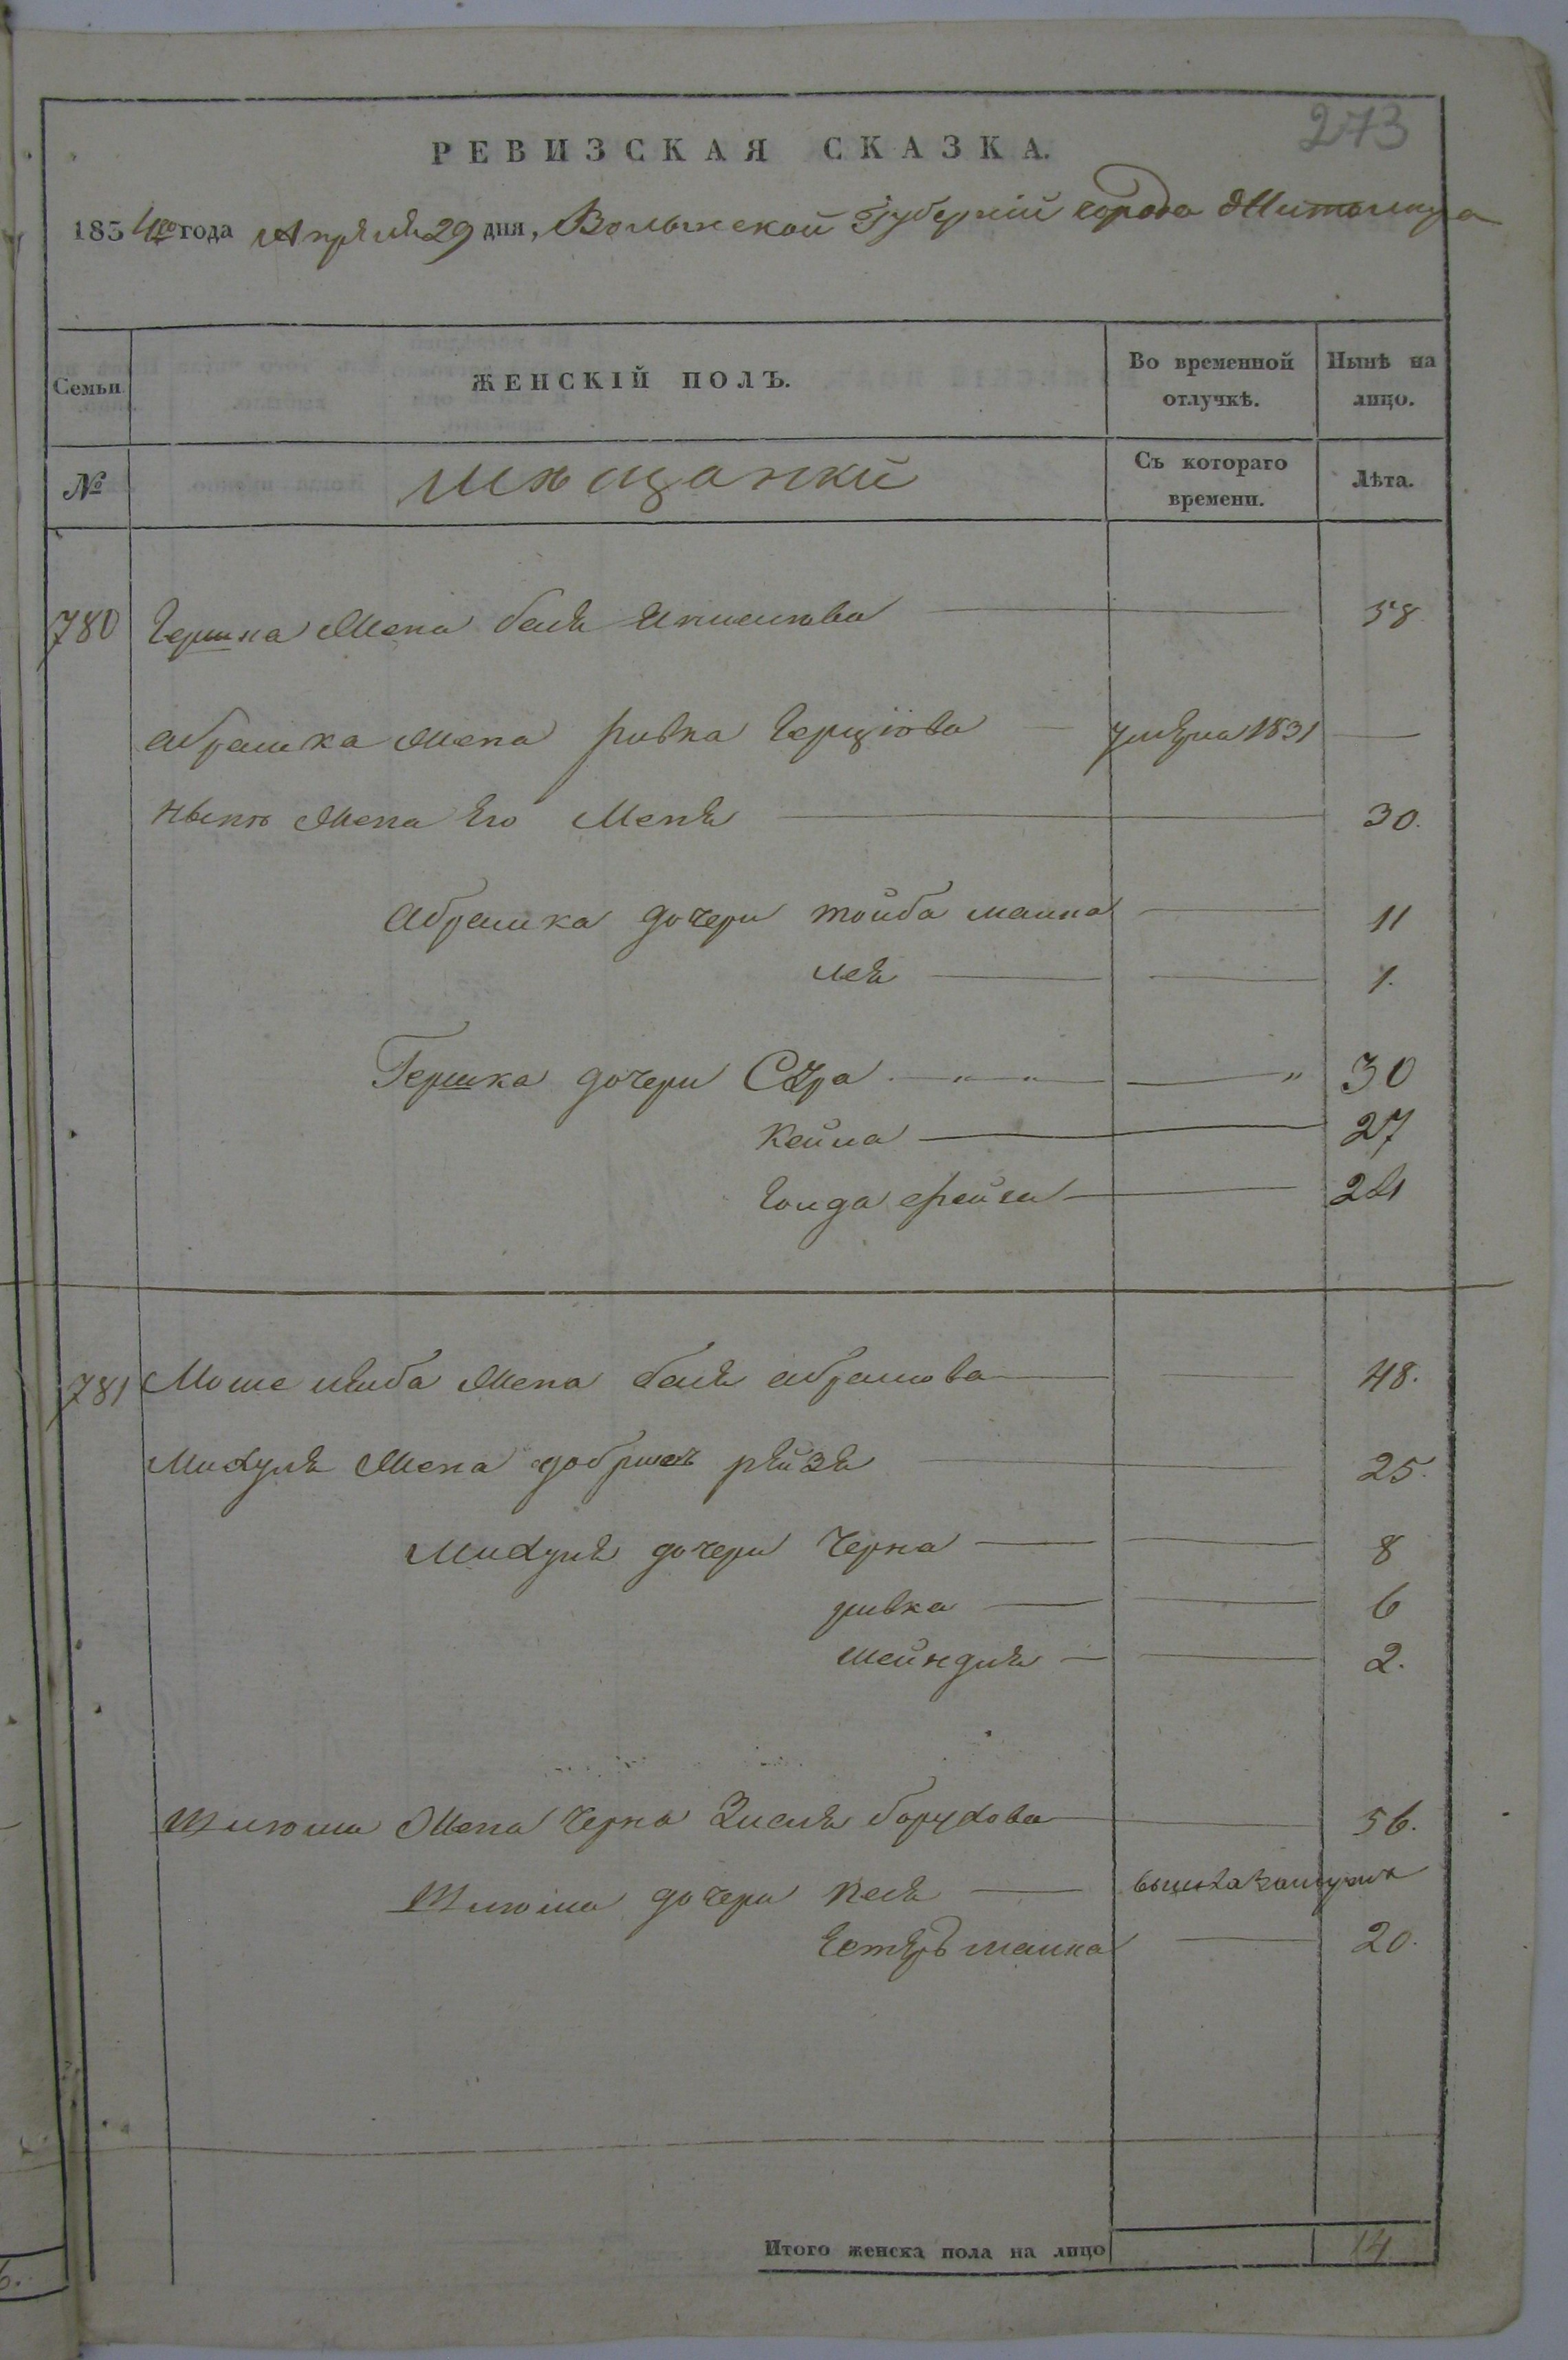 273
РЕВИЗСКАЯ СКАЗКА.
1834го года Апреля 29 дня, Волынской Губернии города Житомира
Семьи
ЖЕНСКІЙ ПОЛЪ.
Во временной отлучкѣ.
Нынѣ на лицо.
№
мѣщанки
Съ котораго времени.
Лѣта.
780 Гершка жена бейля 58
абрамка жена ривка Герціова умерла 1831
нынѣ жена его Меня 30.
Абрамка дочери тойба малка 11
лея 1.
Гершка дочери Сура 30
Кейла 27
Голда фейга 24
781 Моше лейба жена бейля абрамова 48.
Михуля жена рейзя 25.
Михуля дочери Черна 8
ривка 6
шейндля 2.
Шлиома жена черна Зисля борухова 56.
Шлиома дочери Келя вышла замужъ
Естеръ малка 20.
Итого женска пола на лицо 14